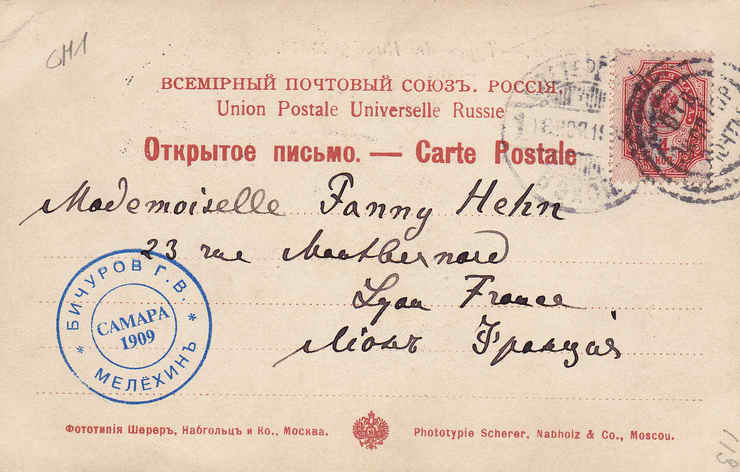 CM1
ВСЕМІРНЫЙ ПОЧТОВЫЙ СОЮЗЪ. РОССІЯ.
Union Postale Universelle Russie
Открытое письмо. — Carte Postale
Mademoiselle Fanny Hehn
23 rue Montbernard
Lyon France
Ліонъ Франція
БИЧУРОВ Г. В.
САМАРА
1909
МЕЛЁХИНЪ
Фототипія Шереръ, Набгольцъ и Ко., Москва.
Phototypie Scherer, Nabholz & Co., Moscou.